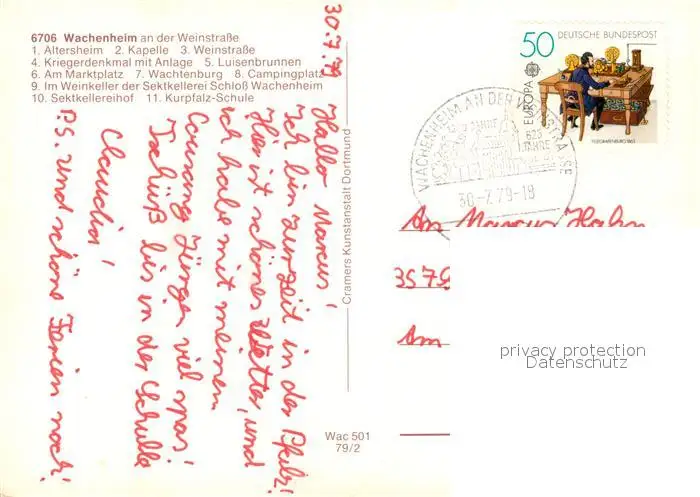 6706 Wachenheim an der Weinstraße
1. Altersheim 2. Kapelle 3. Weinstraße
4. Kriegerdenkmal mit Anlage 5. Luisenbrunnen
6. Am Marktplatz 7. Wachtenburg 8. Campingplatz
9. Im Weinkeller der Sektkellerei Schloß Wachenheim
10. Sektkellereihof 11. Kurpfalz-Schule
30.7.79
Hallo Marcus!
Ich bin zurzeit in der Pfalz!
Hier ist schönes Wetter, und
ich habe mit meinem
Cousing Jürgen viel spas!
Tschüß bis in der Schulle
Claudia!
P.S. und schöne Ferien noch!
Cramers Kunstanstalt Dortmund
Wac 501
79/2
50 DEUTSCHE BUNDESPOST
EUROPA
CEPT
TELEGRAFENBÜRO 1863
WACHENHEIM AN DER WEINSTRASSE
625
JAHRE
30-7.79-18
An Marcus Hahn
3579
Am
privacy protection
Datenschutz